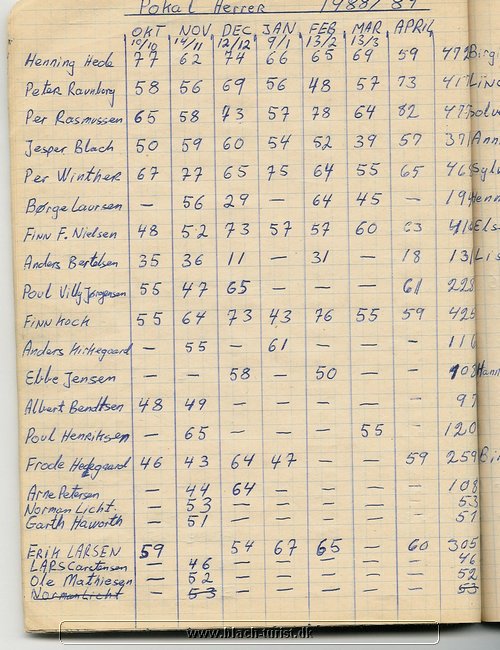 Pokal Herrer 1988/89
OKT NOV DEC JAN FEB MAR APRIL
10/10 14/11 12/12 9/1 13/2 13/3
Henning Hede 77 62 74 66 65 69 59 472
Peter Raunborg 58 56 69 56 48 57 73 417
Per Rasmussen 65 58 73 57 78 64 82 477
Jesper Blach 50 59 60 54 52 39 57 371
Per Winther 67 77 65 75 64 55 65 468
Børge Laursen — 56 29 — 64 45 — 194
Finn F. Nielsen 48 52 73 57 57 60 63 410
Anders Bertelsen 35 36 11 — 31 — 18 131
Poul Villy Jørgensen 55 47 65 — — — 61 228
Finn Koch 55 64 73 43 76 55 59 425
Anders Kirkegaard — 55 — 61 — — — 116
Ebbe Jensen — — 58 — 50 — — 108
Albert Bendtsen 48 49 — — — — — 97
Poul Henriksen — 65 — — — 55 — 120
Frode Hedegaard 46 43 64 47 — — 59 259
Arne Petersen — 44 64 — — — — 108
Norman Licht. — 53 — — — — — 53
Garth Haworth — 51 — — — — — 51
ERIK LARSEN 59 54 67 65 — 60 305
LARS Carstensen — 46 — — — — — 46
Ole Mathiesen — 52 — — — — — 52
Norman Licht — 53 — — — — — 53
www.blach-turist.dk